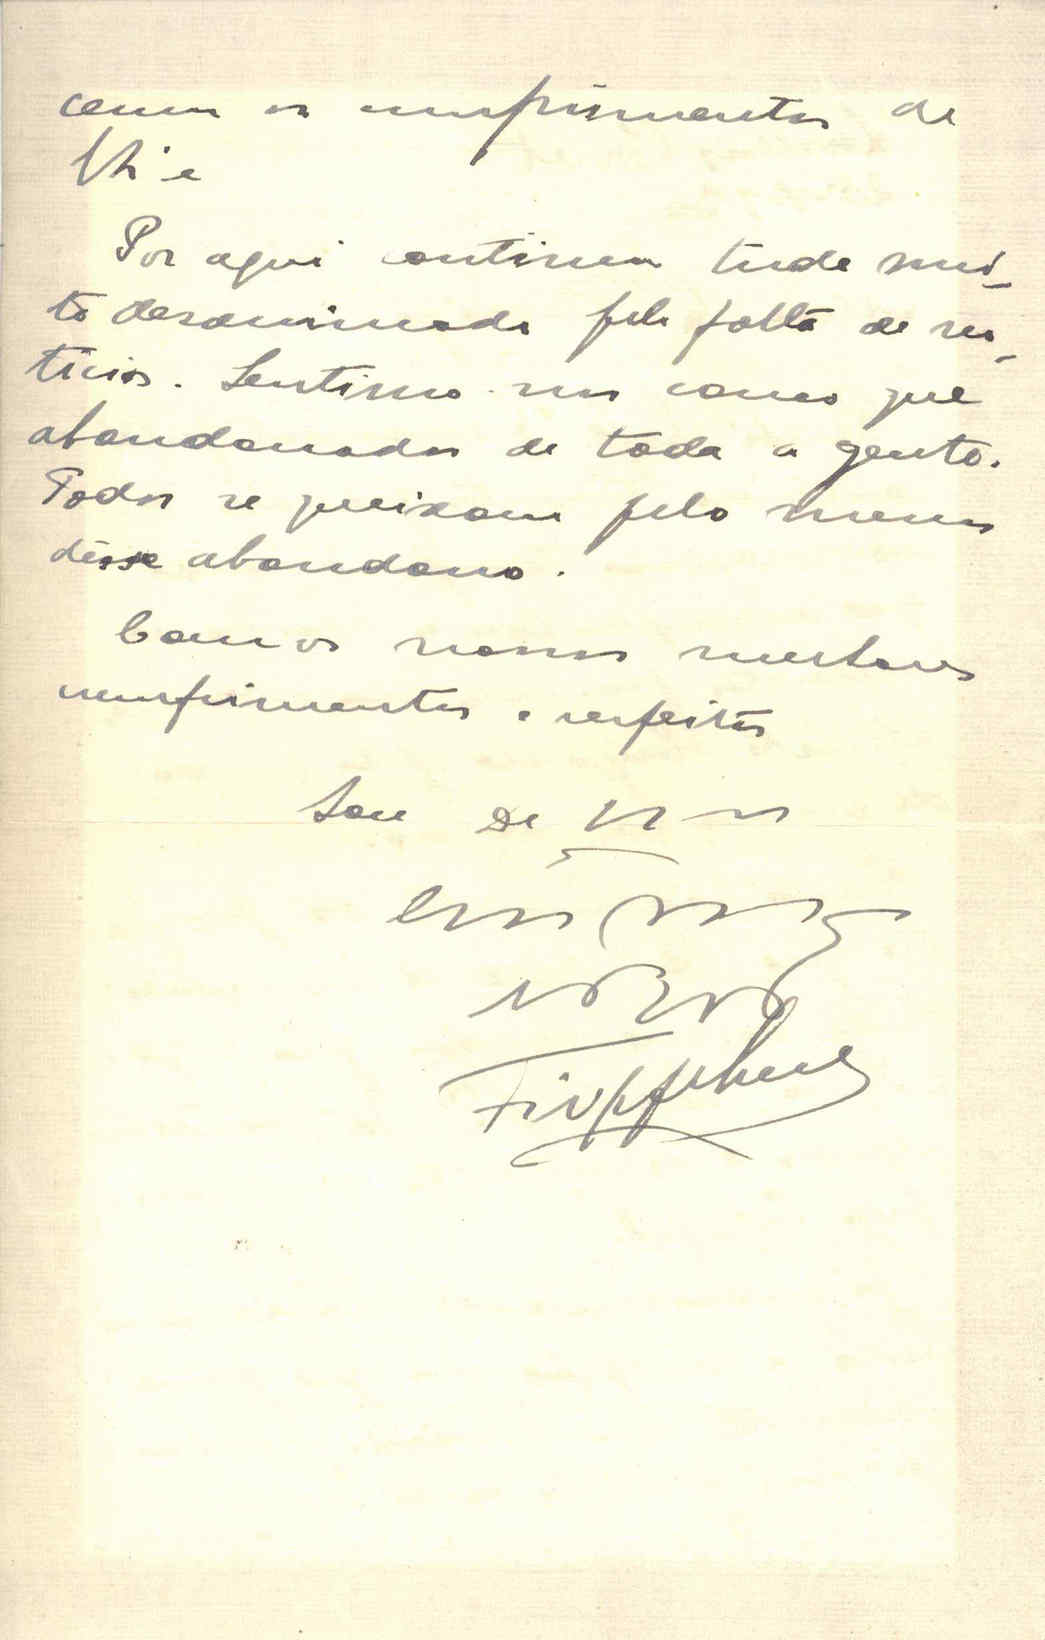 cem os cumprimentos de
V. Ex.ª
Por aqui continua tudo mui-
to desanimado pela falta de no-
ticias. Sentimo-nos como que
abandonados de toda a gente.
Todos se queixam pelo menos
dêsse abandono.
Com os nossos melhores
cumprimentos e respeitos
Sou de V.